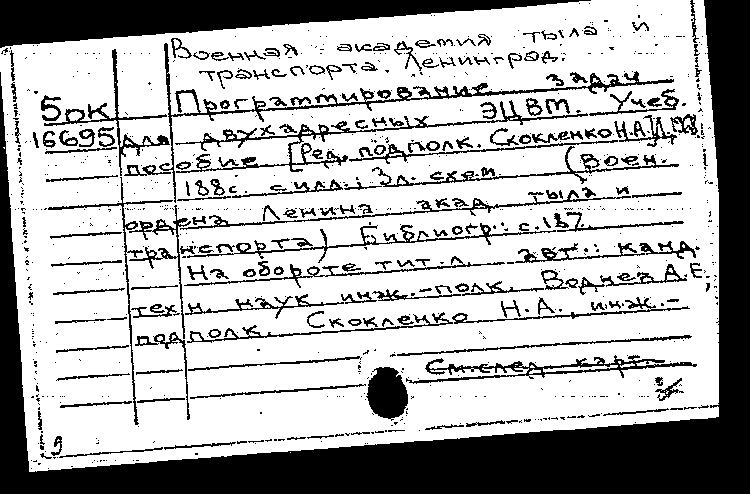 Военная академия тыла и
транспорта. Ленинград.
5ок Программирование задач
16695 для двухадресных ЭЦВМ. Учеб.
пособие [Ред. подполк. Скокленко Н.А.] Л., 1968.
188с. с илл.; 3л. схем (Воен.
ордена Ленина акад. тыла и
транспорта) Библиогр.: с.187.
На обороте тит. л. авт.: канд.
техн. наук инж.-полк. Воднев А.Е.,
подполк. Скокленко Н.А., инж.-
См. след. карт.